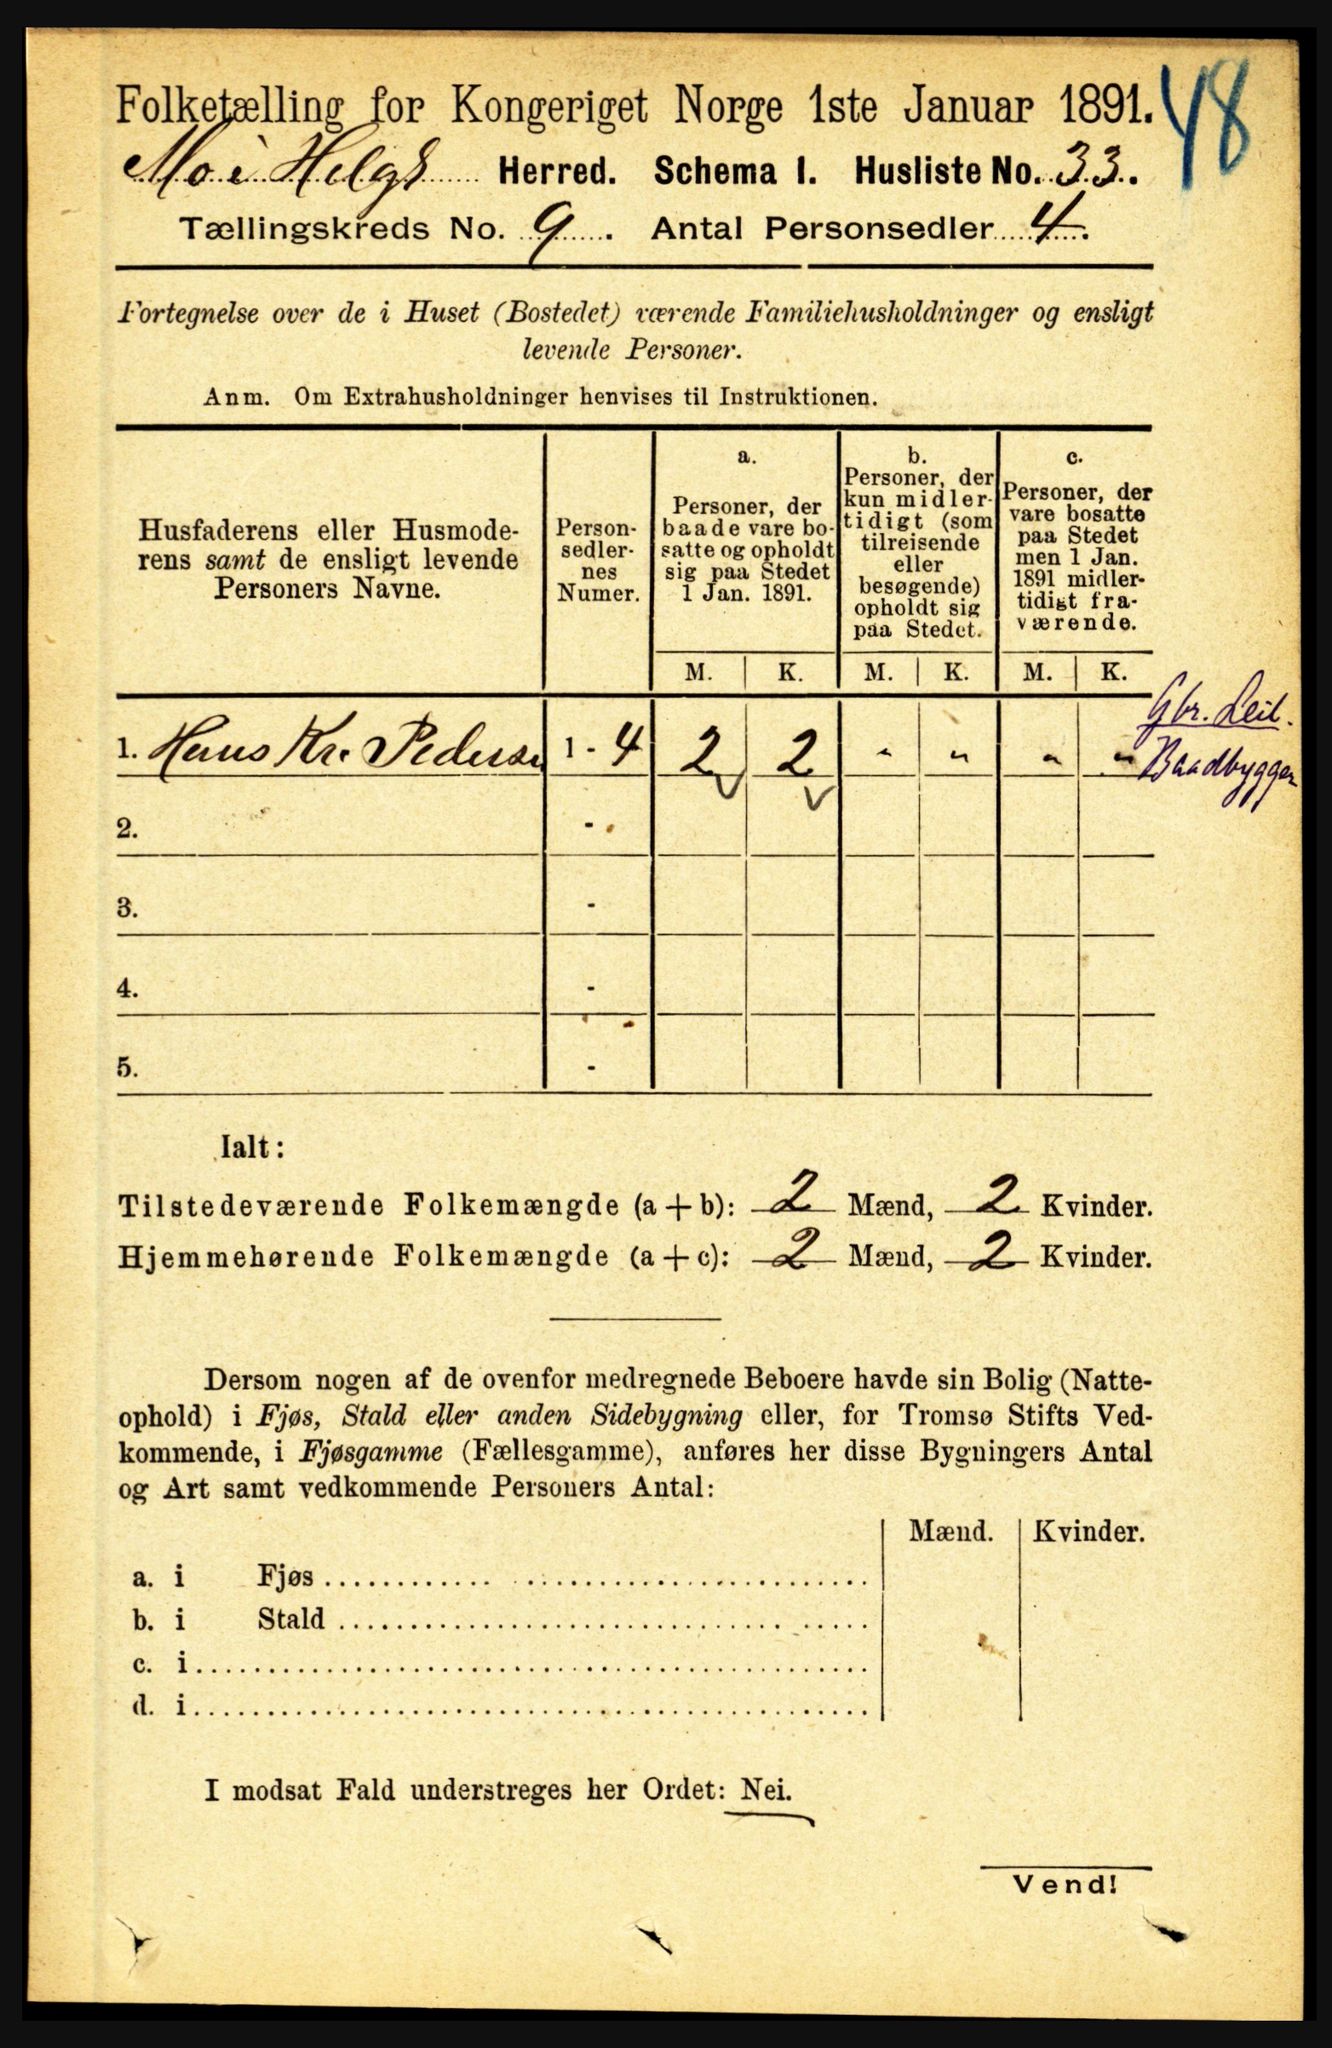 Folketælling for Kongeriget Norge 1ste Januar 1891.
48
Mo i Helgl Herred. Schema 1. Husliste No. 33.
Tællingskreds No. 9. Antal Personsedler 4.
Fortegnelse over de i Huset (Bostedet) værende Familiehusholdninger og ensligt
levende Personer.
Anm. Om Extrahusholdninger henvises til Instruktionen.
Husfaderens eller Husmode-
rens samt de ensligt levende
Personers Navne.
Person-
sedler-
nes
Numer.
a.
Personer, der
baade vare bo-
satte og opholdt
sig paa Stedet
1 Jan. 1891.
b.
Personer, der
kun midler-
tidigt (som
tilreisende
eller
besøgende)
opholdt sig
paa Stedet.
c.
Personer, der
vare bosatte
paa Stedet
men 1 Jan.
1891 midler-
tidigt fra-
værende.
M. K. M. K. M. K.
1. Hans Kr. Pedersen 1 - 4 2 2 " " " "
Gbr. Leil.
Baadbygger
2. -
3. -
4. -
5. -
Ialt:
Tilstedeværende Folkemængde (a + b): 2 Mænd, 2 Kvinder.
Hjemmehørende Folkemængde (a + c): 2 Mænd, 2 Kvinder.
Dersom nogen af de ovenfor medregnede Beboere havde sin Bolig (Natte-
ophold) i Fjøs, Stald eller anden Sidebygning eller, for Tromsø Stifts Ved-
kommende, i Fjøsgamme (Fællesgamme), anføres her disse Bygningers Antal
og Art samt vedkommende Personers Antal:
Mænd. Kvinder.
a. i Fjøs
b. i Stald
c. i
d. i
I modsat Fald understreges her Ordet: Nei.
Vend!